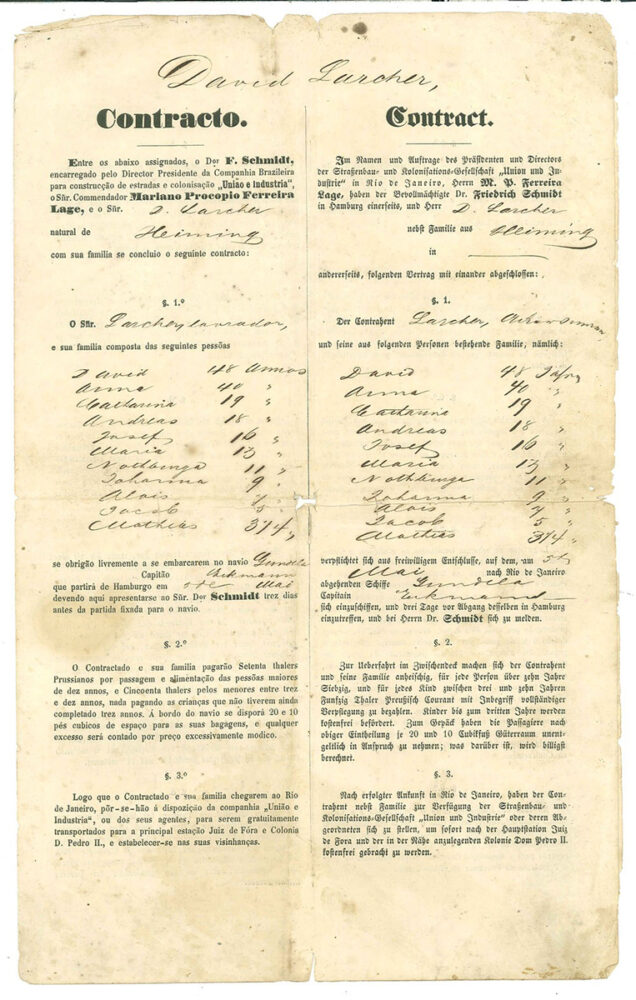 David Larcher,
Contracto.
Entre os abaixo assignados, o Dor F. Schmidt,
encarregado pelo Director Presidente da Companhia Brazileira
para construcção de estradas e colonisação „União e Industria",
o Sñr. Commendador Mariano Procopio Ferreira
Lage, e o Sñr. D. Larcher
natural de Heiming
com sua familia se concluio o seguinte contracto:
§. 1.º
O Sñr. Larcher, lavrador,
e sua familia composta das seguintes pessôas
David 48 Annos
Anna 40 "
Catharina 19 "
Andreas 18 "
Josef 16 "
Maria 13 "
Nothburga 11 "
Johanna 9 "
Alois 7 "
Jacob 5 "
Mathias 3/4 "
se obrigão livremente a se embarcarem no navio Gundela
Capitão Eckmann
que partirá de Hamburgo em 5te Mai
devendo aqui apresentarse ao Sñr. Dor Schmidt trez dias
antes da partida fixada para o navio.
§. 2.º
O Contractado e sua familia pagarão Setenta thalers
Prussianos por passagem e alimentação das pessôas maiores
de dez annos, e Cincoenta thalers pelos menores entre trez
e dez annos, nada pagando as crianças que não tiverem ainda
completado trez annos. Á bordo do navio se disporá 20 e 10
pés cubicos de espaço para as suas bagagens, e qualquer
excesso será contado por preço excessivamente modico.
§. 3.º
Logo que o Contractado e sua familia chegarem ao Rio
de Janeiro, pôr-se-hão á dispozição da companhia „União e
Industria", ou dos seus agentes, para serem gratuitamente
transportados para a principal estação Juiz de Fóra e Colonia
D. Pedro II., e estabelecer-se nas suas visinhanças.
Contract.
Im Namen und Auftrage des Präsidenten und Directors
der Straßenbau- und Kolonisations-Gesellschaft „Union und In-
dustrie" in Rio de Janeiro, Herrn M. P. Ferreira
Lage, haben der Bevollmächtigte Dr. Friedrich Schmidt
in Hamburg einerseits, und Herr D. Larcher
nebst Familie aus Heiming
in
andererseits, folgenden Vertrag mit einander abgeschlossen:
§. 1.
Der Contrahent Larcher, Ackersmann
und seine aus folgenden Personen bestehende Familie, nämlich:
David 48 Jahre
Anna 40 "
Catharina 19 "
Andreas 18 "
Josef 16 "
Maria 13 "
Nothburga 11 "
Johanna 9 "
Alois 7 "
Jacob 5 "
Mathias 3/4 "
verpflichtet sich aus freiwilligem Entschlusse, auf dem, am 5t
Mai nach Rio de Janeiro
abgehenden Schiffe Gundela
Capitain Eckmann
sich einzuschiffen, und drei Tage vor Abgang desselben in Hamburg
einzutreffen, und bei Herrn Dr. Schmidt sich zu melden.
§. 2.
Zur Ueberfahrt im Zwischendeck machen sich der Contrahent
und seine Familie anheischig, für jede Person über zehn Jahre
Siebzig, und für jedes Kind zwischen drei und zehn Jahren
Funfzig Thaler Preußisch Courant mit Inbegriff vollständiger
Verpflegung zu bezahlen. Kinder bis zum dritten Jahre werden
kostenfrei befördert. Zum Gepäck haben die Passagiere nach
obiger Eintheilung je 20 und 10 Cubikfuß Güterraum unent-
geltlich in Anspruch zu nehmen; was darüber ist, wird billigst
berechnet.
§. 3.
Nach erfolgter Ankunft in Rio de Janeiro, haben der Con-
trahent nebst Familie zur Verfügung der Straßenbau- und
Kolonisations-Gesellschaft „Union und Industrie" oder deren Ab-
geordneten sich zu stellen, um sofort nach der Hauptstation Juiz
de Fora und der in der Nähe anzulegenden Kolonie Dom Pedro II.
kostenfrei gebracht zu werden.